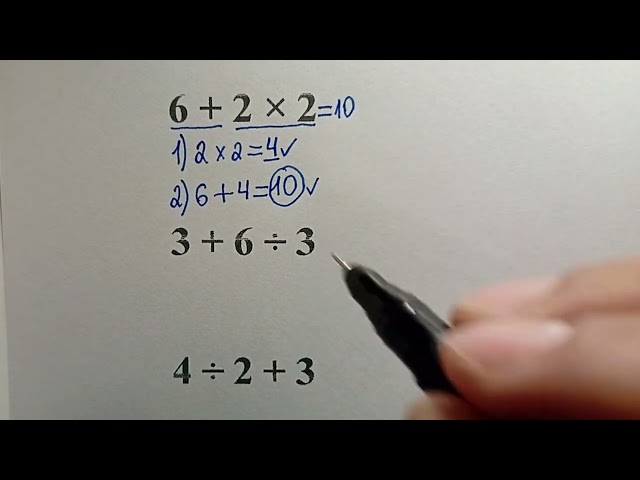 6 + 2 × 2 = 10
1) 2 × 2 = 4 ✓
2) 6 + 4 = 10 ✓
3 + 6 ÷ 3
4 ÷ 2 + 3